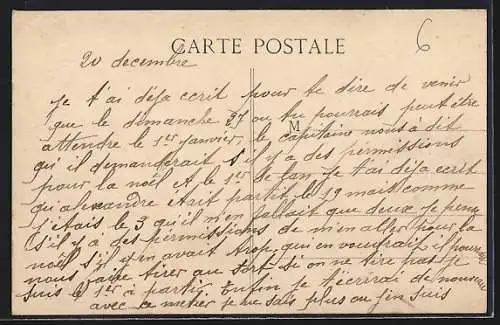 CARTE POSTALE
6
20 decembre
Je t'ai déja ecrit pour te dire de venir
que le dimanche 27 ou tu pourrais peut être
attendre le 1er janvier, le capitaine nous à dit
M
qu'il demanderait s'il y a des permissions
pour la noël et le 1er de l'an je t'ai déja ecrit
qu'alexandre etait partit le 19 mais comme
j'étais le 3 qu'il m'en fallait que deux je peux
s'il y a des permissions de m'en aller pour la
noël s'il y en avait trop qui en voudrait il pourrait
nous faire tirer au sort si on ne tire pas je
suis le 1er à partir. Enfin je t'écrirai de nouveau
avec ce metier je ne sais plus ou j'en suis